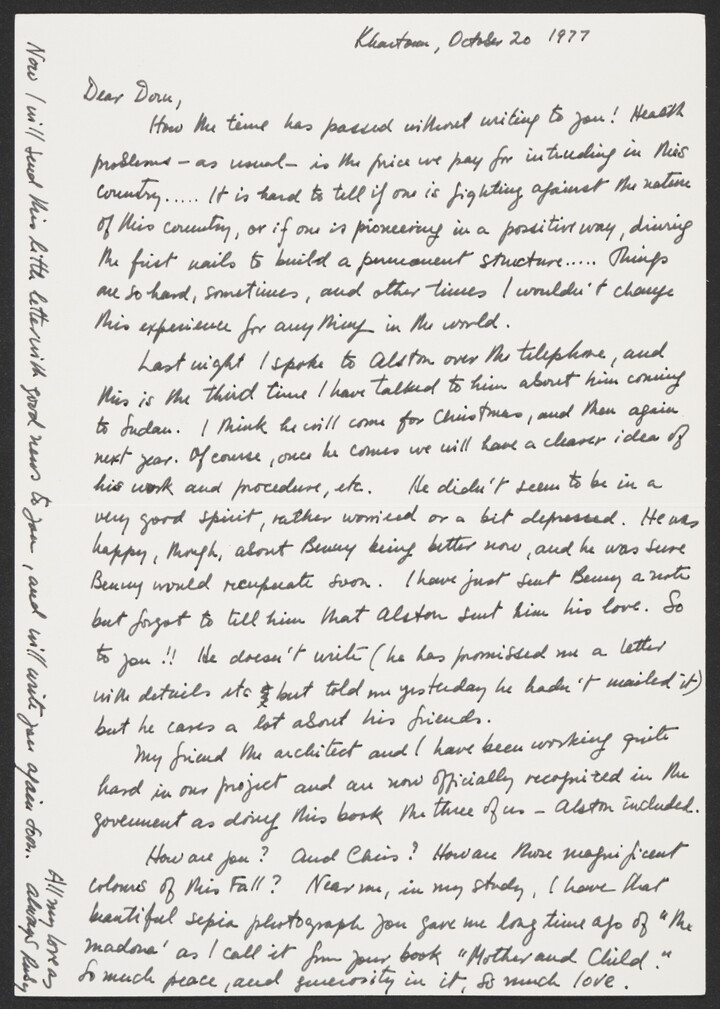 Khartoum, October 20 1977
Dear Dom,
How the time has passed without writing to you! Health
problems - as usual - is the price we pay for intruding in this
country..... It is hard to tell if one is fighting against the nature
of this country, or if one is pioneering in a possitive way, driving
the first nails to build a permanent structure..... Things
are so hard, sometimes, and other times I wouldn't change
this experience for anything in the world.
Last night I spoke to Alston over the telephone, and
this is the third time I have talked to him about him coming
to Sudan. I think he will come for Christmas, and then again
next year. Of course, once he comes we will have a clearer idea of
his work and procedure, etc. He didn't seem to be in a
very good spirit, rather worried or a bit depressed. He was
happy, though, about Benny being better now, and he was sure
Benny would recuperate soon. I have just sent Benny a note
but forgot to tell him that Alston sent him his love. So
to you!! He doesn't write (he has promissed me a letter
with details etc but told me yesterday he hadn't mailed it)
but he cares a lot about his friends.
My friend the architect and I have been working quite
hard in our project and are now officially recognized in the
goverment as doing this book the three of us - Alston included.
How are you? And Chris? How are those magnificent
colours of this Fall? Near me, in my study, I have that
beautiful sepia photograph you gave me long time ago of "the
madona' as I call it from your book "Mother and Child."
So much peace, and generosity in it, so much love.
Now I will send this little letter with good news to you, and will write you again soon.
All my love as
always